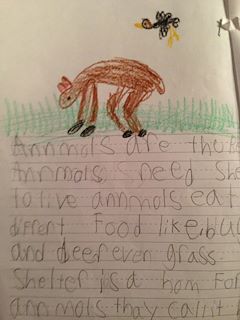 Anmols are thu
Anmols need she
to live anmols eat
diffrent Food like bu
and deer even grass
Shelter is a hom For
anmols thay call it